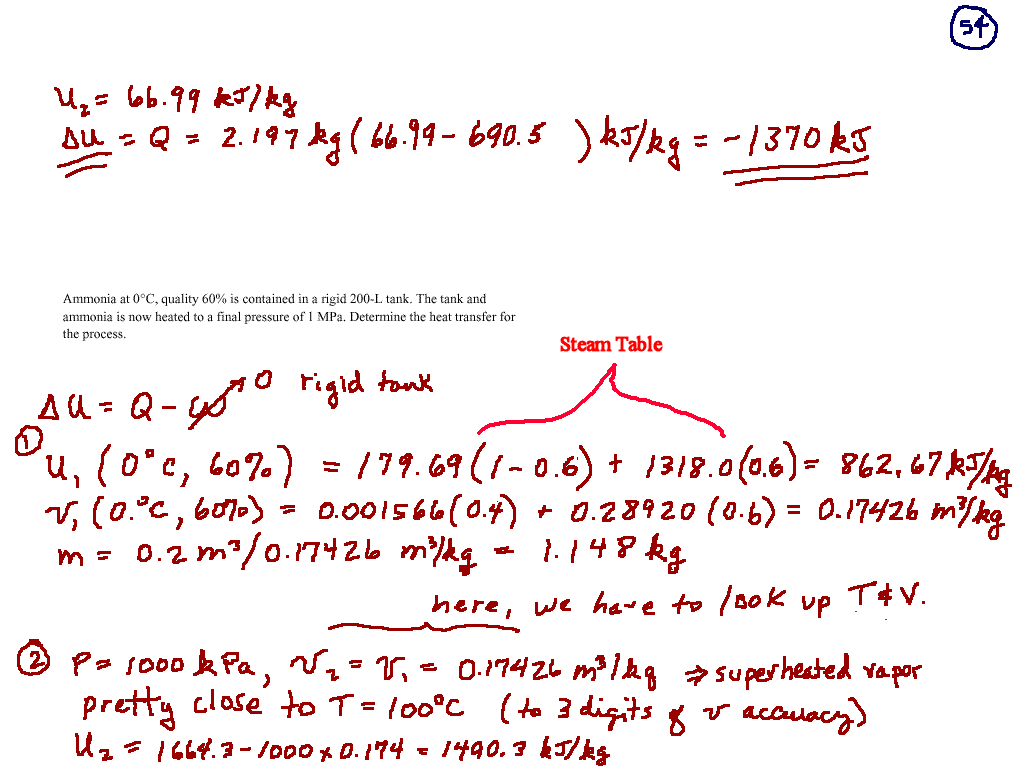 54
u₂ = 66.99 kJ/kg
ΔU = Q = 2.197 kg (66.99 - 690.5 ) kJ/kg = -1370 kJ
Ammonia at 0°C, quality 60% is contained in a rigid 200-L tank. The tank and
ammonia is now heated to a final pressure of 1 MPa. Determine the heat transfer for
the process.
Steam Table
ΔU = Q - W → 0 rigid tank
① u₁ (0°C, 60%) = 179.69 (1 - 0.6) + 1318.0 (0.6) = 862.67 kJ/kg
v₁ (0.°C, 60%) = 0.001566 (0.4) + 0.28920 (0.6) = 0.17426 m³/kg
m = 0.2 m³/0.17426 m³/kg = 1.148 kg
here, we have to look up T & V.
② P = 1000 kPa, v₂ = v₁ = 0.17426 m³/kg ⇒ superheated vapor
pretty close to T = 100°C (to 3 digits of v accuracy)
u₂ = 1664.3 - 1000 x 0.174 = 1490.3 kJ/kg